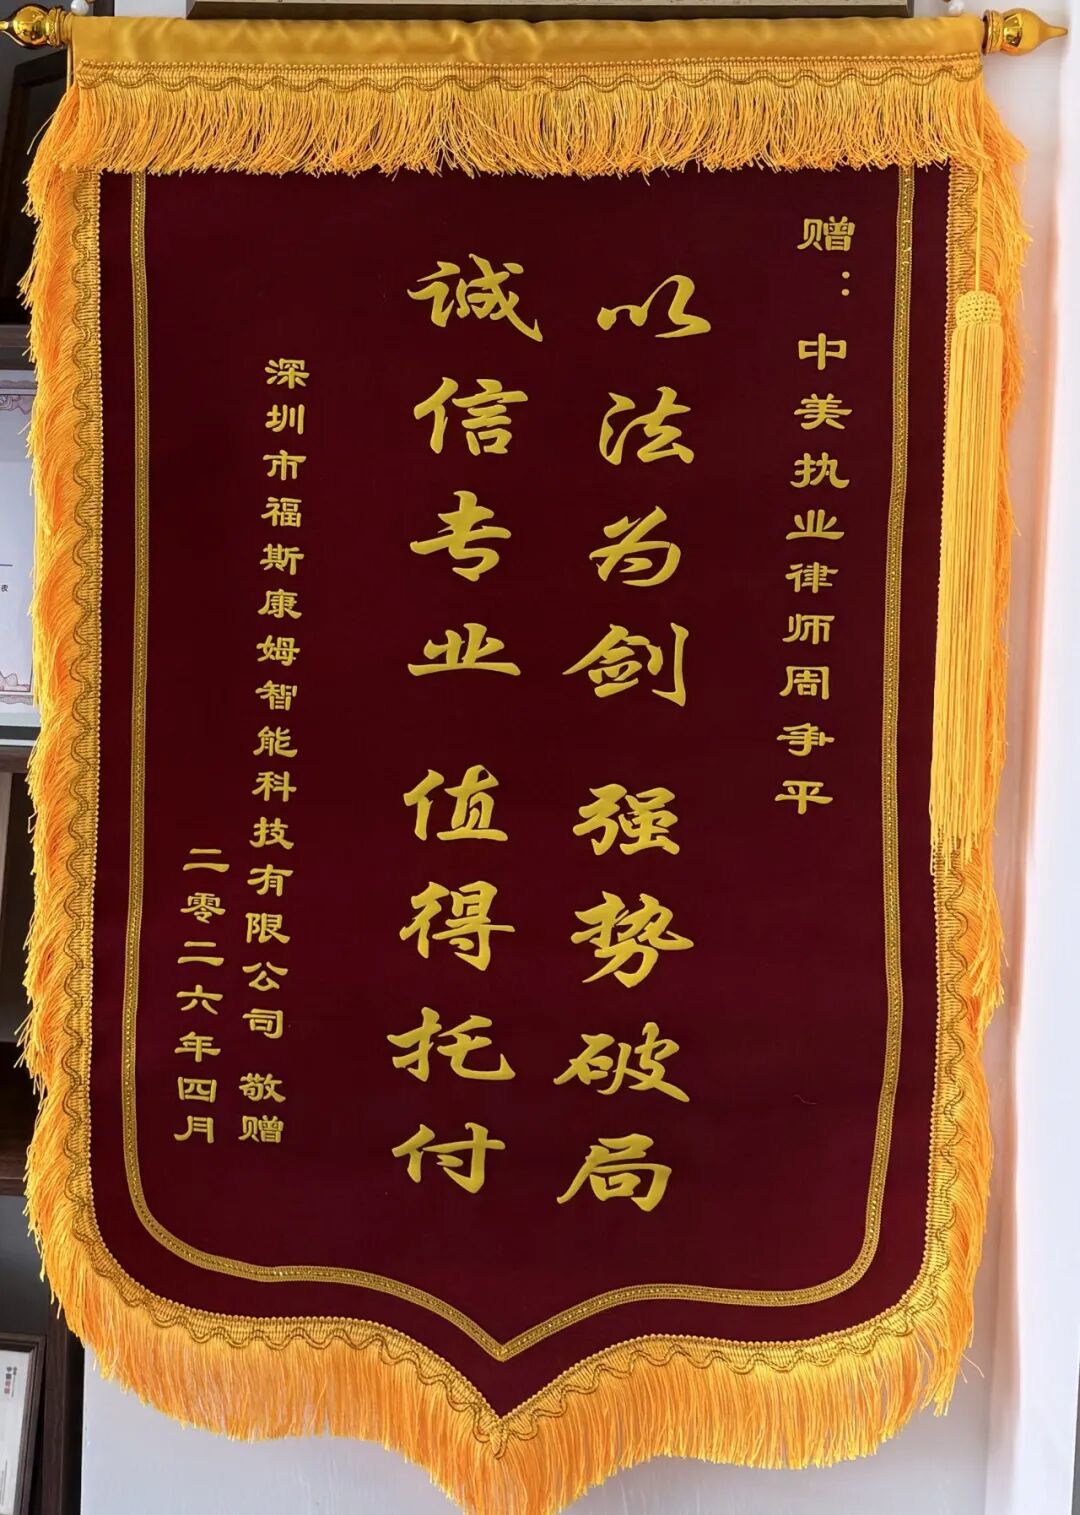 赠：中美执业律师周争平
以法为剑 强势破局
诚信专业 值得托付
深圳市福斯康姆智能科技有限公司 敬赠
二零二六年四月